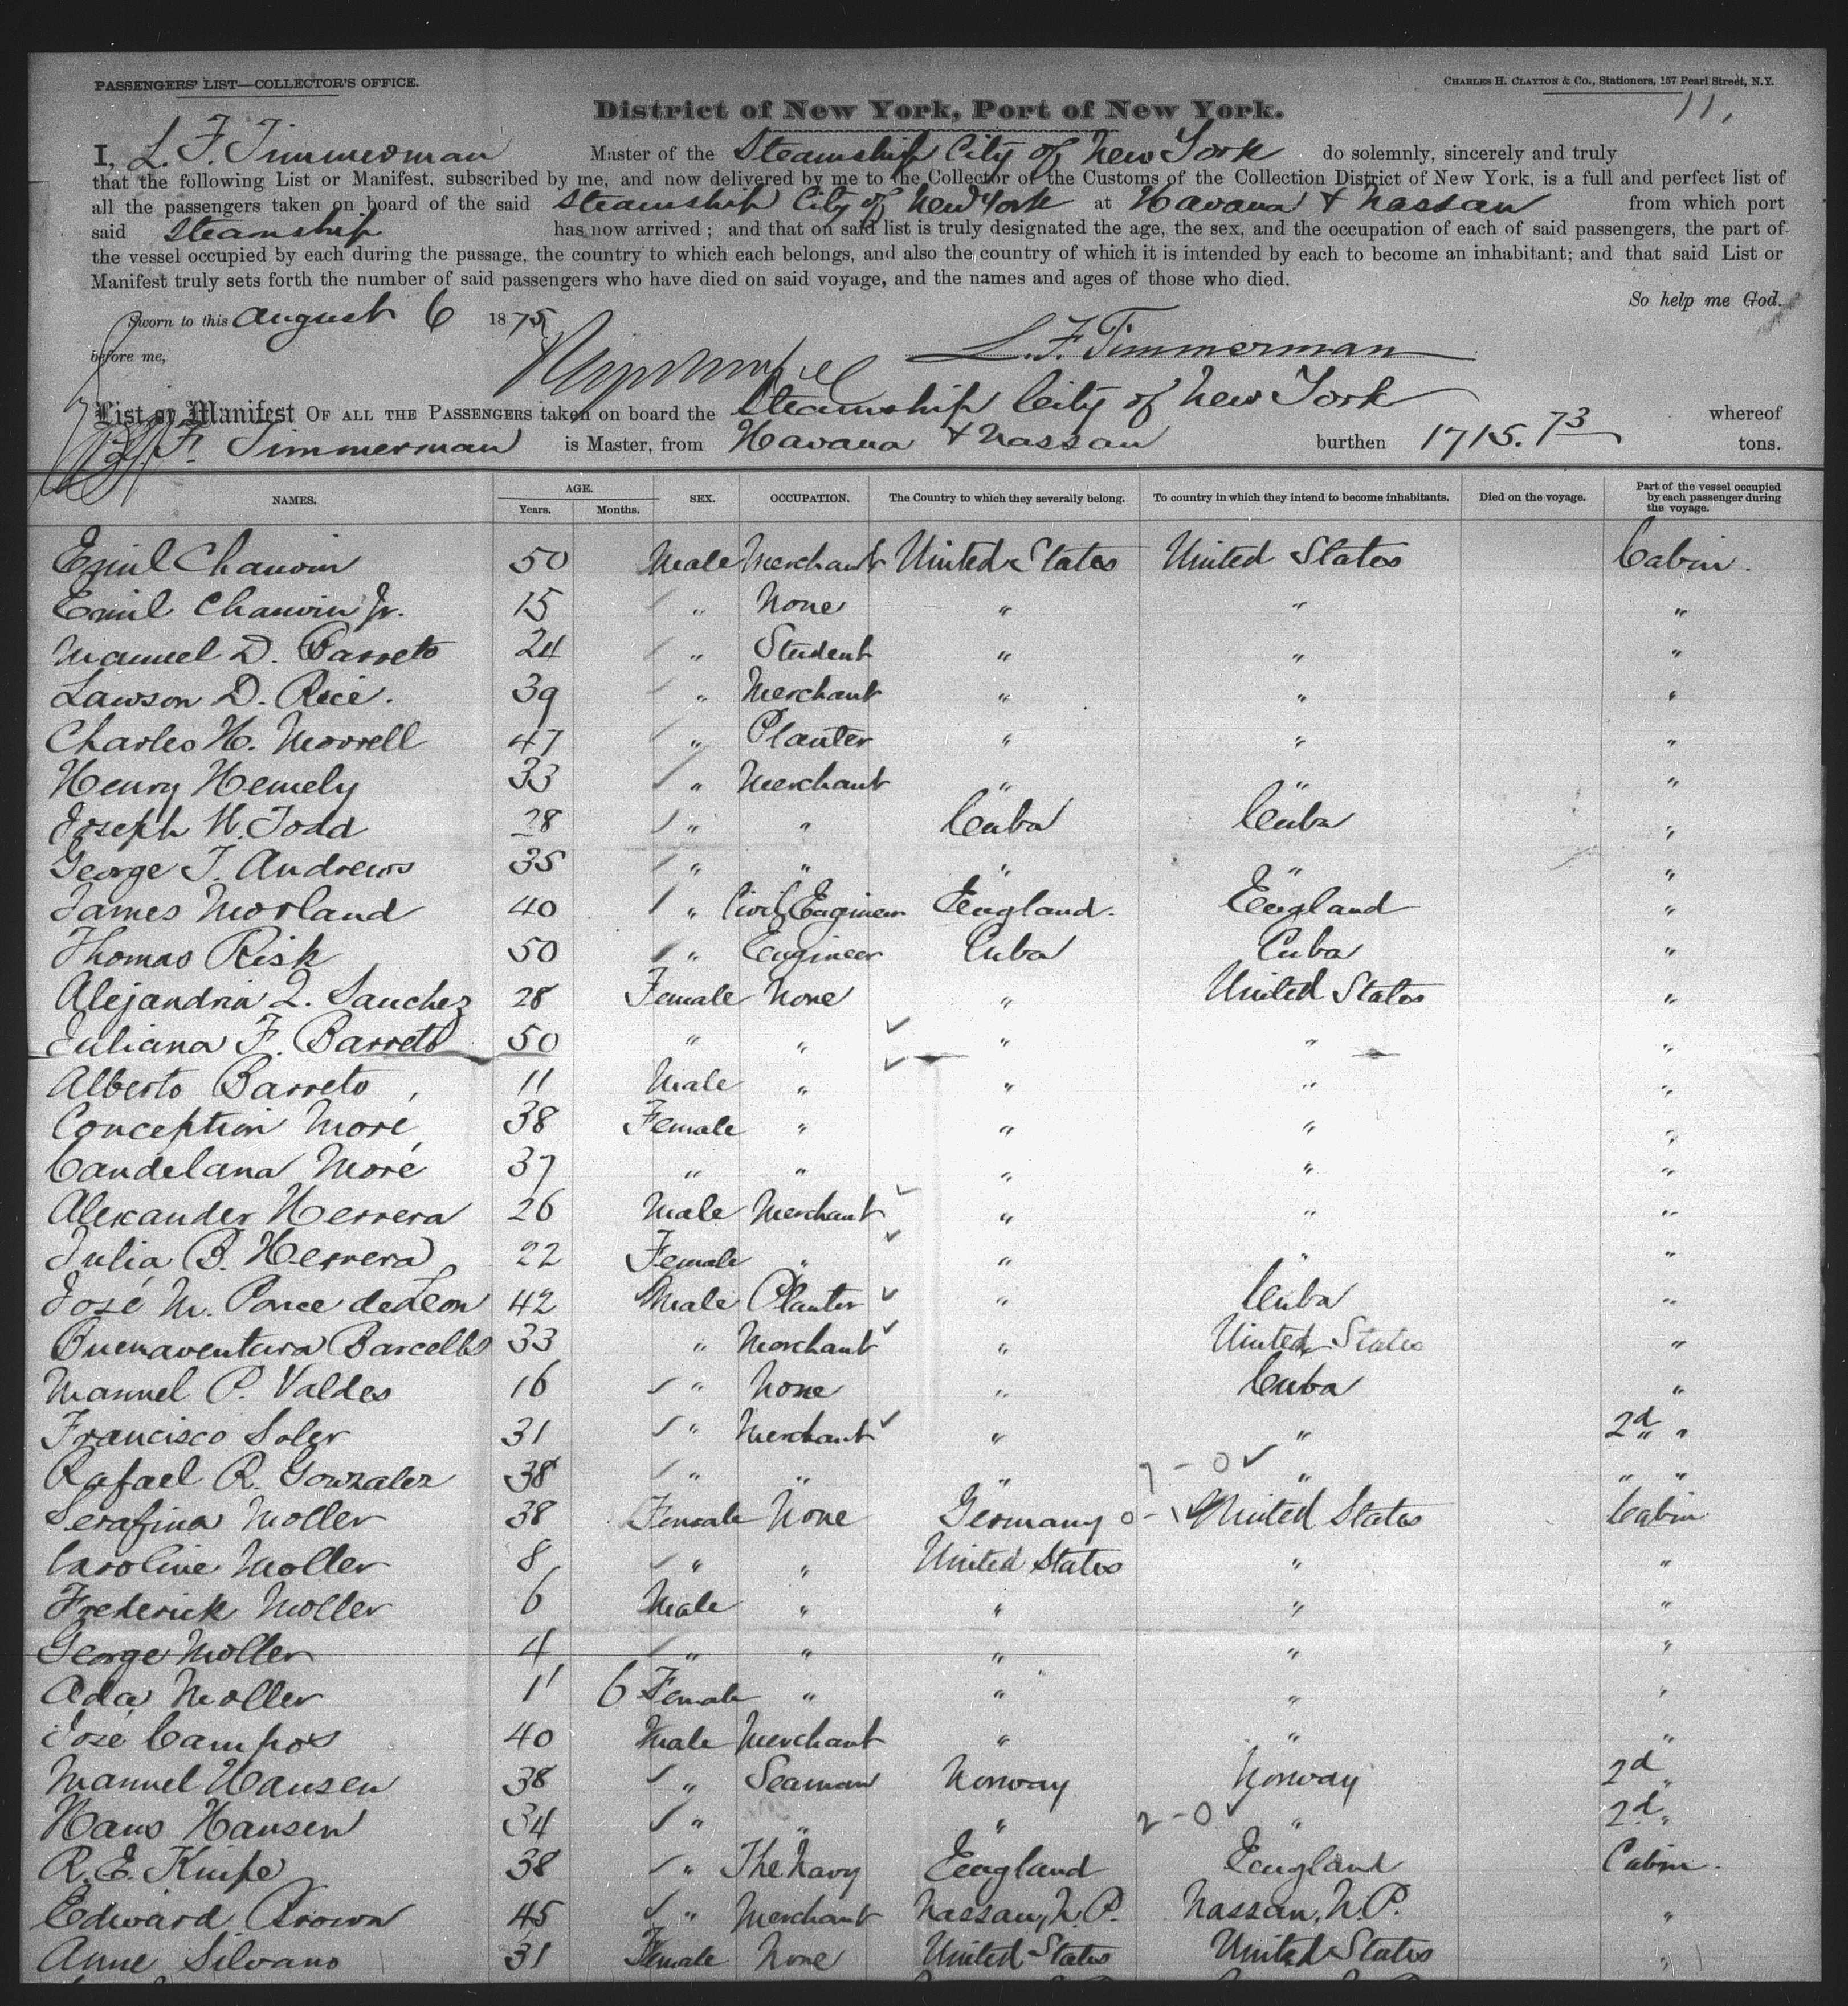 PASSENGERS' LIST—COLLECTOR'S OFFICE.
CHARLES H. CLAYTON & Co., Stationers, 157 Pearl Street, N.Y.
11,
District of New York, Port of New York.
I, L. F. Timmerman Master of the Steamship City of New York do solemnly, sincerely and truly
that the following List or Manifest, subscribed by me, and now delivered by me to the Collector of the Customs of the Collection District of New York, is a full and perfect list of
all the passengers taken on board of the said Steamship City of New York at Havana & Nassau from which port
said Steamship has now arrived; and that on said list is truly designated the age, the sex, and the occupation of each of said passengers, the part of
the vessel occupied by each during the passage, the country to which each belongs, and also the country of which it is intended by each to become an inhabitant; and that said List or
Manifest truly sets forth the number of said passengers who have died on said voyage, and the names and ages of those who died.
So help me God.
Sworn to this August 6 1875
before me,
L. F. Timmerman
List or Manifest OF ALL THE PASSENGERS taken on board the Steamship City of New York whereof
L. F. Timmerman is Master, from Havana & Nassau burthen 1715.73 tons.
NAMES. AGE. Years. Months. SEX. OCCUPATION. The Country to which they severally belong. To country in which they intend to become inhabitants. Died on the voyage. Part of the vessel occupied by each passenger during the voyage.
Emil Chauvin 50 Male Merchant United States United States Cabin.
Emil Chauvin Jr. 15 " None " " "
Manuel D. Barreto 24 " Student " " "
Lawson D. Rice. 39 " Merchant " " "
Charles H. Morrell 47 " Planter " " "
Henry Hemely 33 " Merchant " " "
Joseph W. Todd 28 " " Cuba Cuba "
George T. Andrews 35 " " " " "
James Morland 40 " Civil Engineer England. England "
Thomas Risk 50 " Engineer Cuba Cuba "
Alejandria Q. Sanchez 28 Female None " United States "
Juliana F. Barreto 50 " " " " "
Alberto Barreto 11 Male " " " "
Conception Moré 38 Female " " " "
Candelana Moré 37 " " " " "
Alexander Herrera 26 Male Merchant " " "
Julia B. Herrera 22 Female " " " "
José M. Ponce de Leon 42 Male Planter " Cuba "
Buenaventura Barcello 33 " Merchant " United States "
Manuel P. Valdes 16 " None " Cuba "
Francisco Soler 31 " Merchant " " 2d "
Rafael R. Gonzalez 38 " " " " " "
Serafina Moller 38 Female None Germany United States Cabin
Caroline Moller 8 " " United States " "
Frederick Moller 6 Male " " " "
George Moller 4 " " " " "
Ada Moller 1 6 Female " " " "
José Campos 40 Male Merchant " " "
Manuel Hansen 38 " Seaman Norway Norway 2d "
Hans Hansen 34 " " " 2-0 " 2d "
R. E. Knipe 38 " The Navy England England Cabin.
Edward Brown 45 " Merchant Nassau, N.P. Nassau, N.P. "
Anne Silvano 31 Female None United States United States "